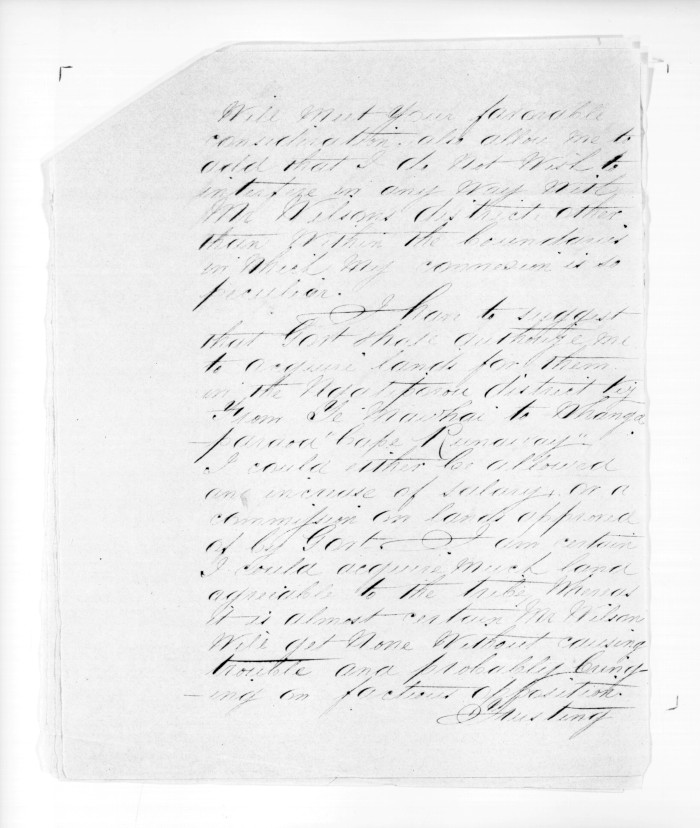 Will meet Your favorable
consideration, also allow me to
add that I do Not Wish to
interfere in any Way With
Mr Wilsons district other
than Within the boundaries
in Which My connexion is so
peculiar.
I have to suggest
that Govt shall authorize me
to acquire lands for them
in the Ngatiporou district
From Te Mawhai to Whanga
-paraoa "Cape Runaway"
I could either be allowed
an increase of salary, or a
commission on lands approved
of by Govt. I am certain
I could acquire Much land
agreeable to the tribe, Whereas
it is almost certain Mr Wilson
Will get None Without causing
trouble and probably bring-
-ing on factious opposition.
Trusting